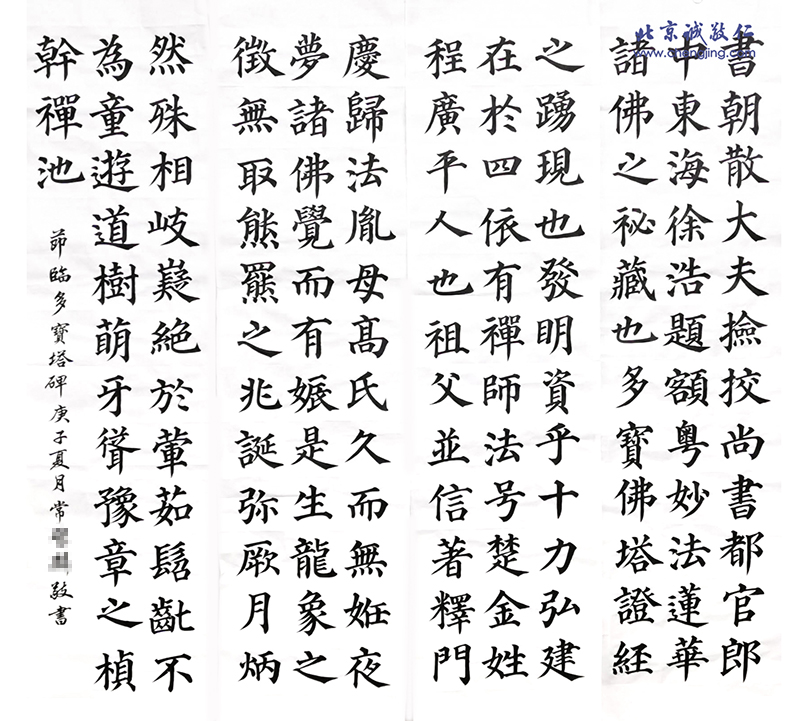 北京诚敬行
www.chengjing.com
書朝散大夫撿挍尚書都官郎
中東海徐浩題額粤妙法蓮華
諸佛之祕藏也多寶佛塔證経
之踴現也發明資乎十力弘建
在於四依有禪師法号楚金姓
程廣平人也祖父並信著釋門
慶歸法胤母髙氏久而無姙夜
夢諸佛覺而有娠是生龍象之
徵無取熊羆之兆誕弥厥月炳
然殊相岐嶷絶於葷茹髫齓不
為童遊道樹萌牙聳豫章之楨
幹禪池
莭臨多寶塔碑庚子夏月常敬書